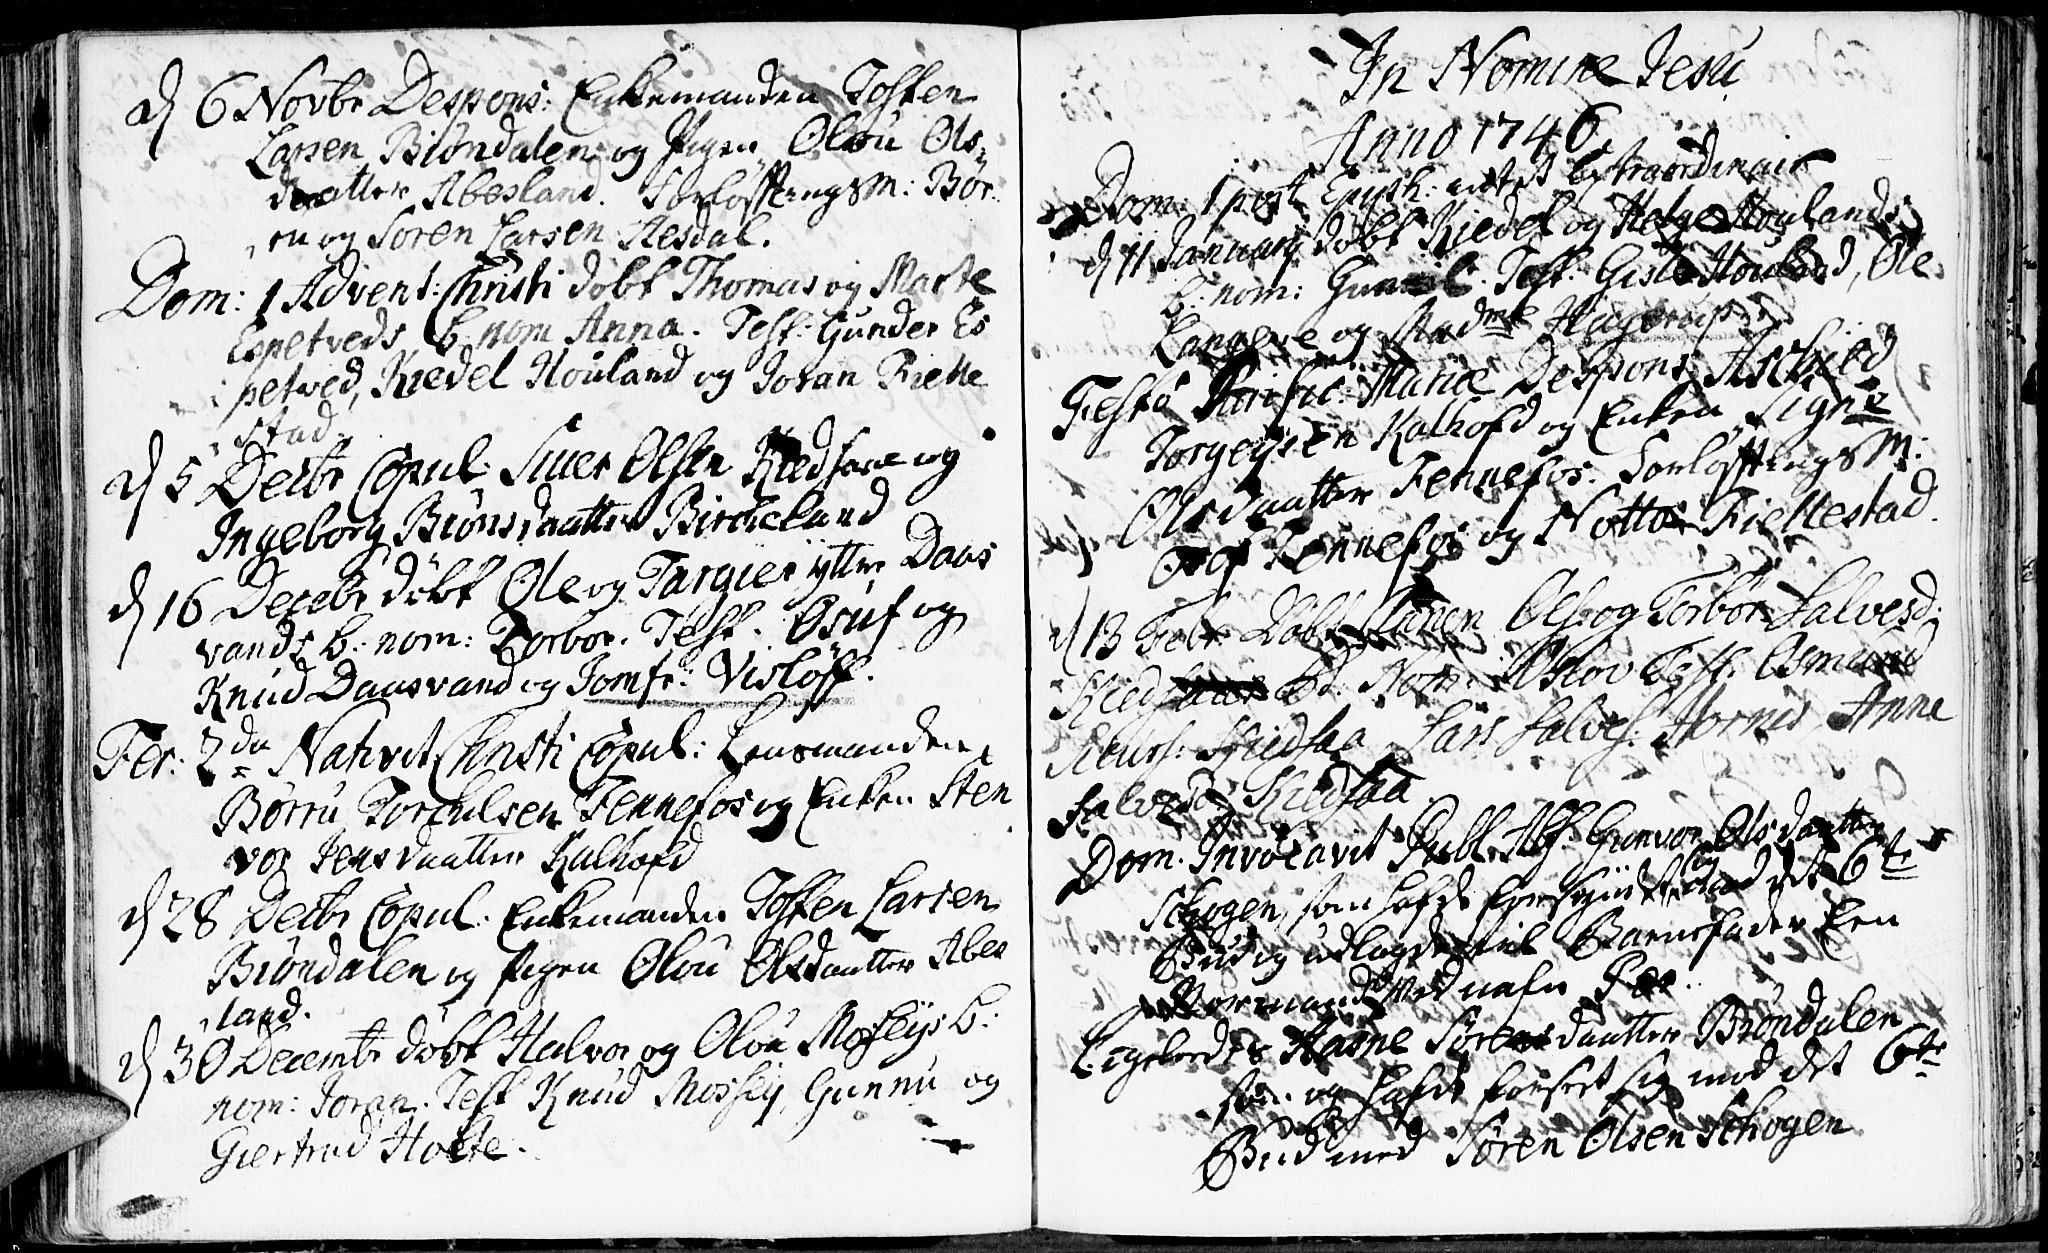 d 6 Novbr Despons: Enkemanden Tosten
Larsen Biøndalen og Pigen Olou Ols-
daatter Abesland. Forløftningsm: Bør
ru og Søren Larsen Aesdal.
Dom: 1 Advent: Christi døbt Thomas og Marte
Espetveds b. nom Anna. Test: Gunder Es
petved, Kiedel Houland og Joran Fielle
stad.
d 5 Decbr Copul: Siuer Olsen Kiedsaae og
Ingeborg Biønsdaatter Birckeland
d 16 Decebr døbt Ole og Targier ytter Daas
vands b: nom: Torbor. Test. Osuf og
Knud Daasvand og Jomfr: Visløff.
Fer: 2da Nativit Christi Copul: Lensmanden
Børru Torkulsen Fennefos og Enken Sten
vor Jensdaatter Kalhofd
d 28 Decbr Copul: Enkemanden Tosten Larsen
Biøndalen og Pigen Olou Olsdaatter Abes
land.
d 30 Decembr døbt Halvor og Olou Moseys b:
nom: Joran. Test Knud Mossey, Gunnu og
Giertrud Holte.
In Nomine Jesu
Anno 1746.
Dom: 1 post Epiph: intet Extraordinair
d 11 January døbt Kiedel og Helge Houlands
b: nom: Gunnil. Test: Gisle Houland, Ole
Langeie og Madme Hagerup.
Festo Purific: Mariæ Despons: Asbiød
Torgeysen Kalhofd og Enken Signe
Olsdaatter Fennefos. Forløftnings M:
Oluf Fennefos og Notto Fiellestad.
d 13 Febr: Døbt Ols: og Torbor Salvesd:
Kiedsaae bd. Nom: Aslov Test. Osmund
Kiedsaa, Lars Salves: Hornes, Anne
Salvesd: Kiedsaa
Dom. Invocavit Publ. Abs. Gunvor Olsdaatter
Schogen, som hafde forsyndet sig imod det 6te
Bud og udlagde til Barnefader Een
Normand ved nafn Per.
Ligeledes Aasne Sørensdaatter Biøndalen
som og hafde forseet sig mod det 6te
Bud med Søren Olsen Schogen